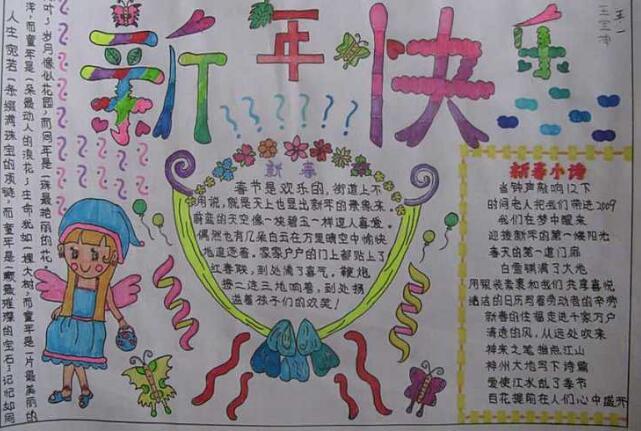 新年快乐
新春
春节是欢乐的,街道上不
用说,就是天上也显出新年的景象来,
蔚蓝的天空像一块碧玉一样逗人喜爱。
偶然也有几朵白云在万里晴空中愉快
地逛逛着。家家户户的门上都贴上了
红春联,到处满了喜气。鞭炮
接二连三地响着,到处扬
溢着孩子们的欢笑!
新春小诗
当钟声敲响12下
时间老人把我们带进2009
我们在梦中醒来
迎接新年的第一缕阳光
春天的第一道门扉
白雪铺满了大地
用银装素裹和我们共享喜悦
新春的住福走进千家万户
清澈的风,从远处吹来
神来之笔
神州大地写下诗篇
爱使江水乱了季节
百花提前在人们心中盛开
人生宛若一条缀满珠宝的项链,而童年是一颗最璀璨的宝石;记忆如同
洋,而童年是一朵最动人的浪花;生命犹如一棵大树,而童年是一片最美丽的
叶;岁月像似花园,而周年是一株最艳丽的花。